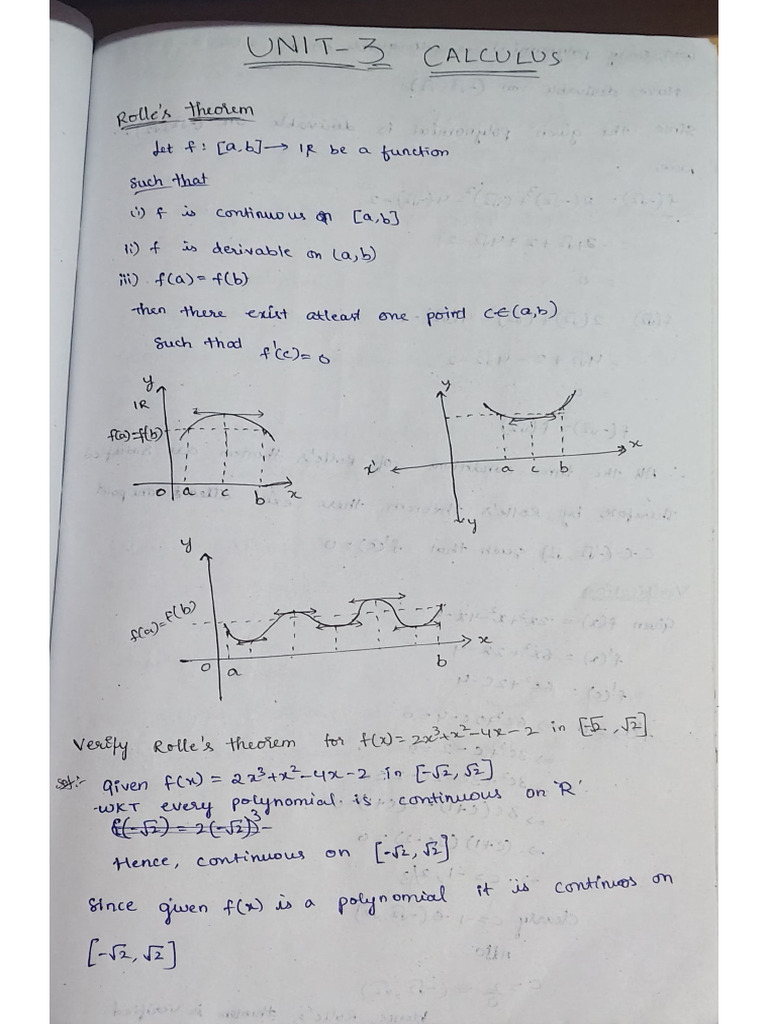 UNIT-3 CALCULUS
Rolle's theorem
Let f : [a,b] → IR be a function
such that
(i) f is continuous on [a,b]
ii) f is derivable on (a,b)
iii) f(a) = f(b)
then there exist atleast one point c∈(a,b)
such that f'(c) = 0
y
IR
f(a)=f(b)
0 a c b x
y
x' a c b x
y
y
f(a)=f(b)
x
0 a b
Verify Rolle's theorem for f(x) = 2x³+x²-4x-2 in [-√2, √2]
Sol:- Given f(x) = 2x³+x²-4x-2 in [-√2, √2]
WKT every polynomial is continuous on 'R'
f(-√2) = 2(-√2)³-
Hence, continuous on [-√2, √2]
Since given f(x) is a polynomial it is continuos on
[-√2, √2]